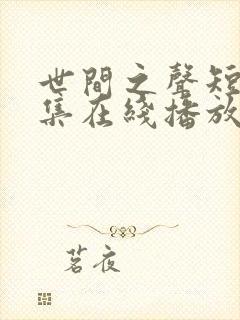 世間之聲短
集在綫播放
茗夜